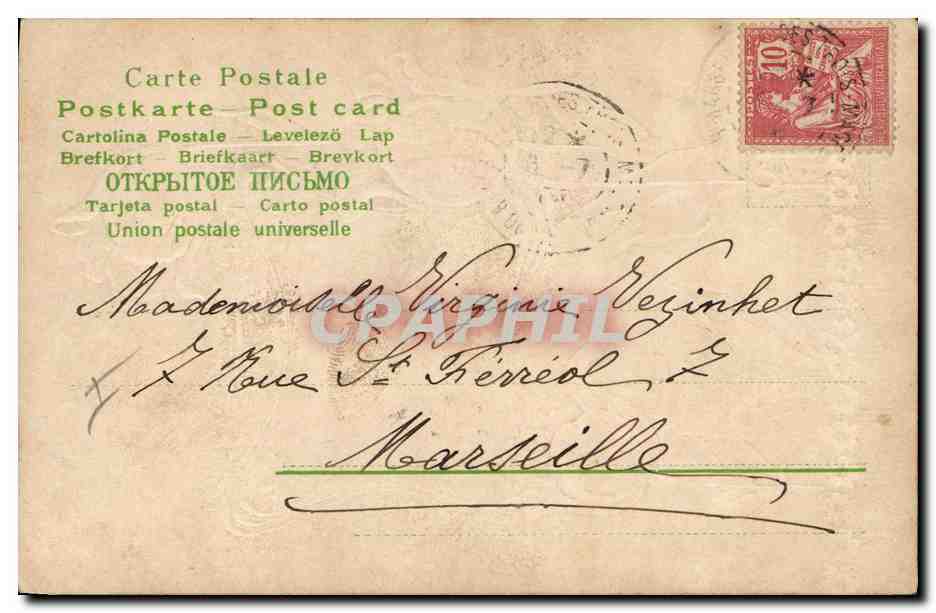 Carte Postale
Postkarte – Post card
Cartolina Postale – Levelezö Lap
Brefkort – Briefkaart – Brevkort
ОТКРЫТОЕ ПИСЬМО
Tarjeta postal – Carto postal
Union postale universelle
10
POSTES
CPAPHIL
Mademoiselle Virginie Vezinhet
7 Rue St Férréol 7
Marseille